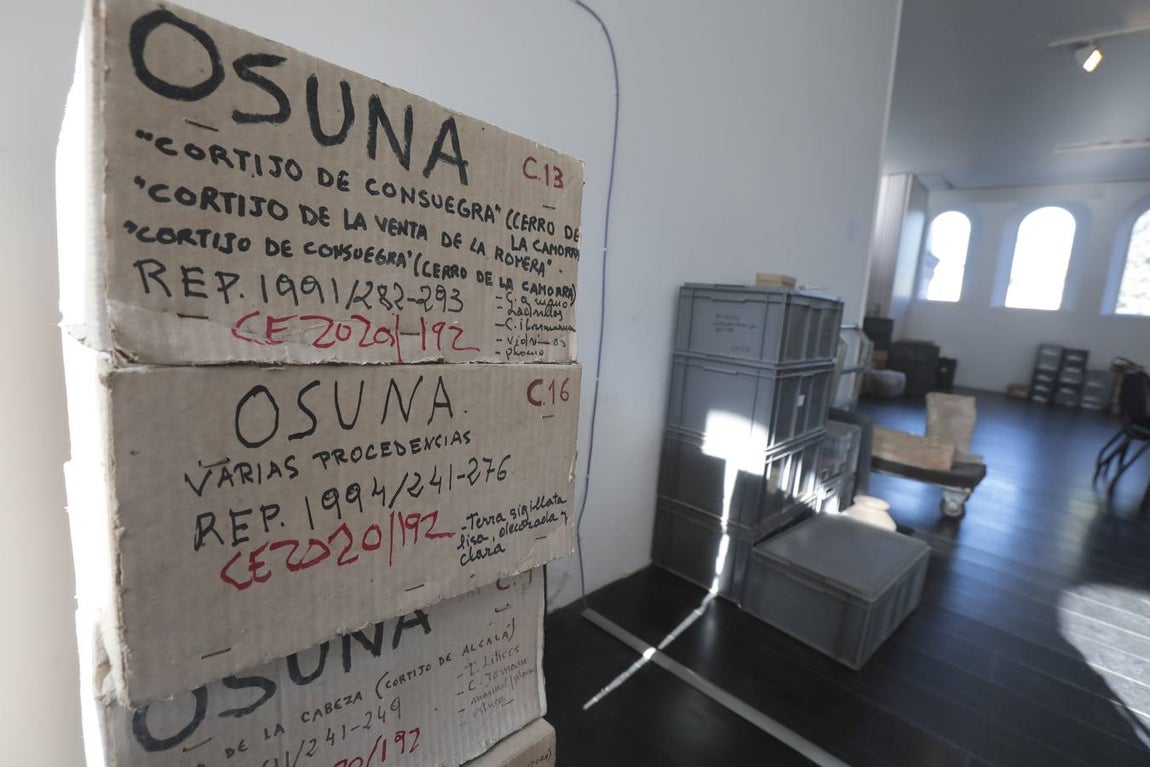 OSUNA
C.13
"CORTIJO DE CONSUEGRA" (CERRO DE
LA CAMORRA
"CORTIJO DE LA VENTA DE LA ROMERA"
"CORTIJO DE CONSUEGRA" (CERRO DE LA CAMORRA)
REP. 1991/282-293
- Ladrillos
- vidrios
- plomo
CE2020/192
OSUNA.
C.16
VARIAS PROCEDENCIAS
REP. 1994/241-276
- Terra sigillata
lisa, decorada y
clara
CE2020/192
OSUNA
DE LA CABEZA (CORTIJO DE ALCALÁ)
/241-249
- estuco
20/192